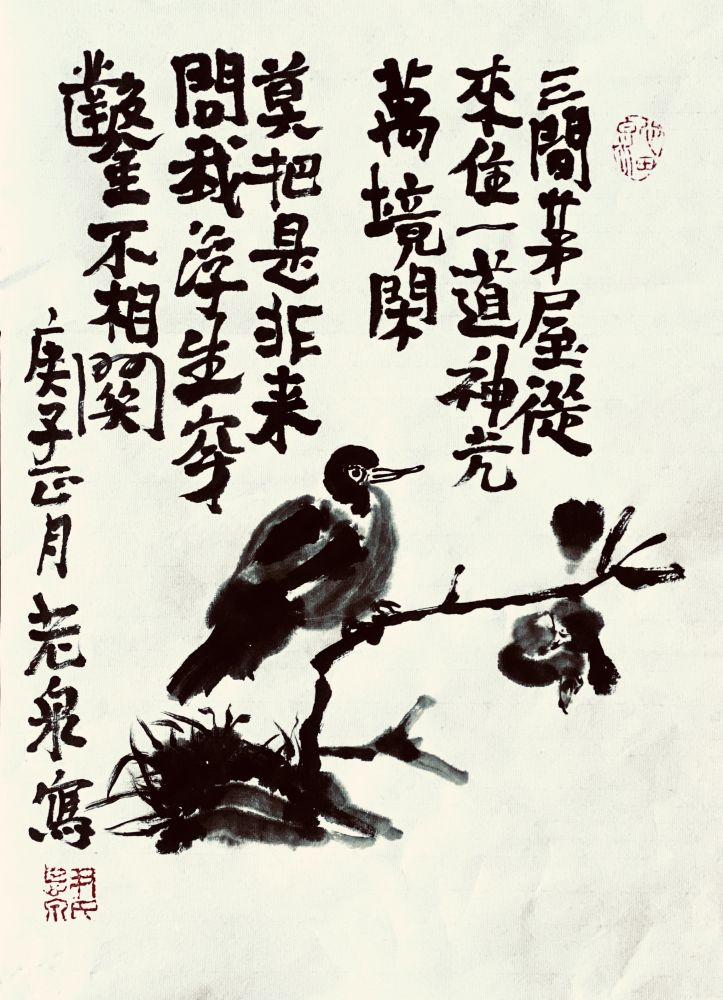 三間茅屋從
來住一道神光
萬境閑
莫把是非来
問我浮生穿
鑿不相關
庚子正月老泉寫